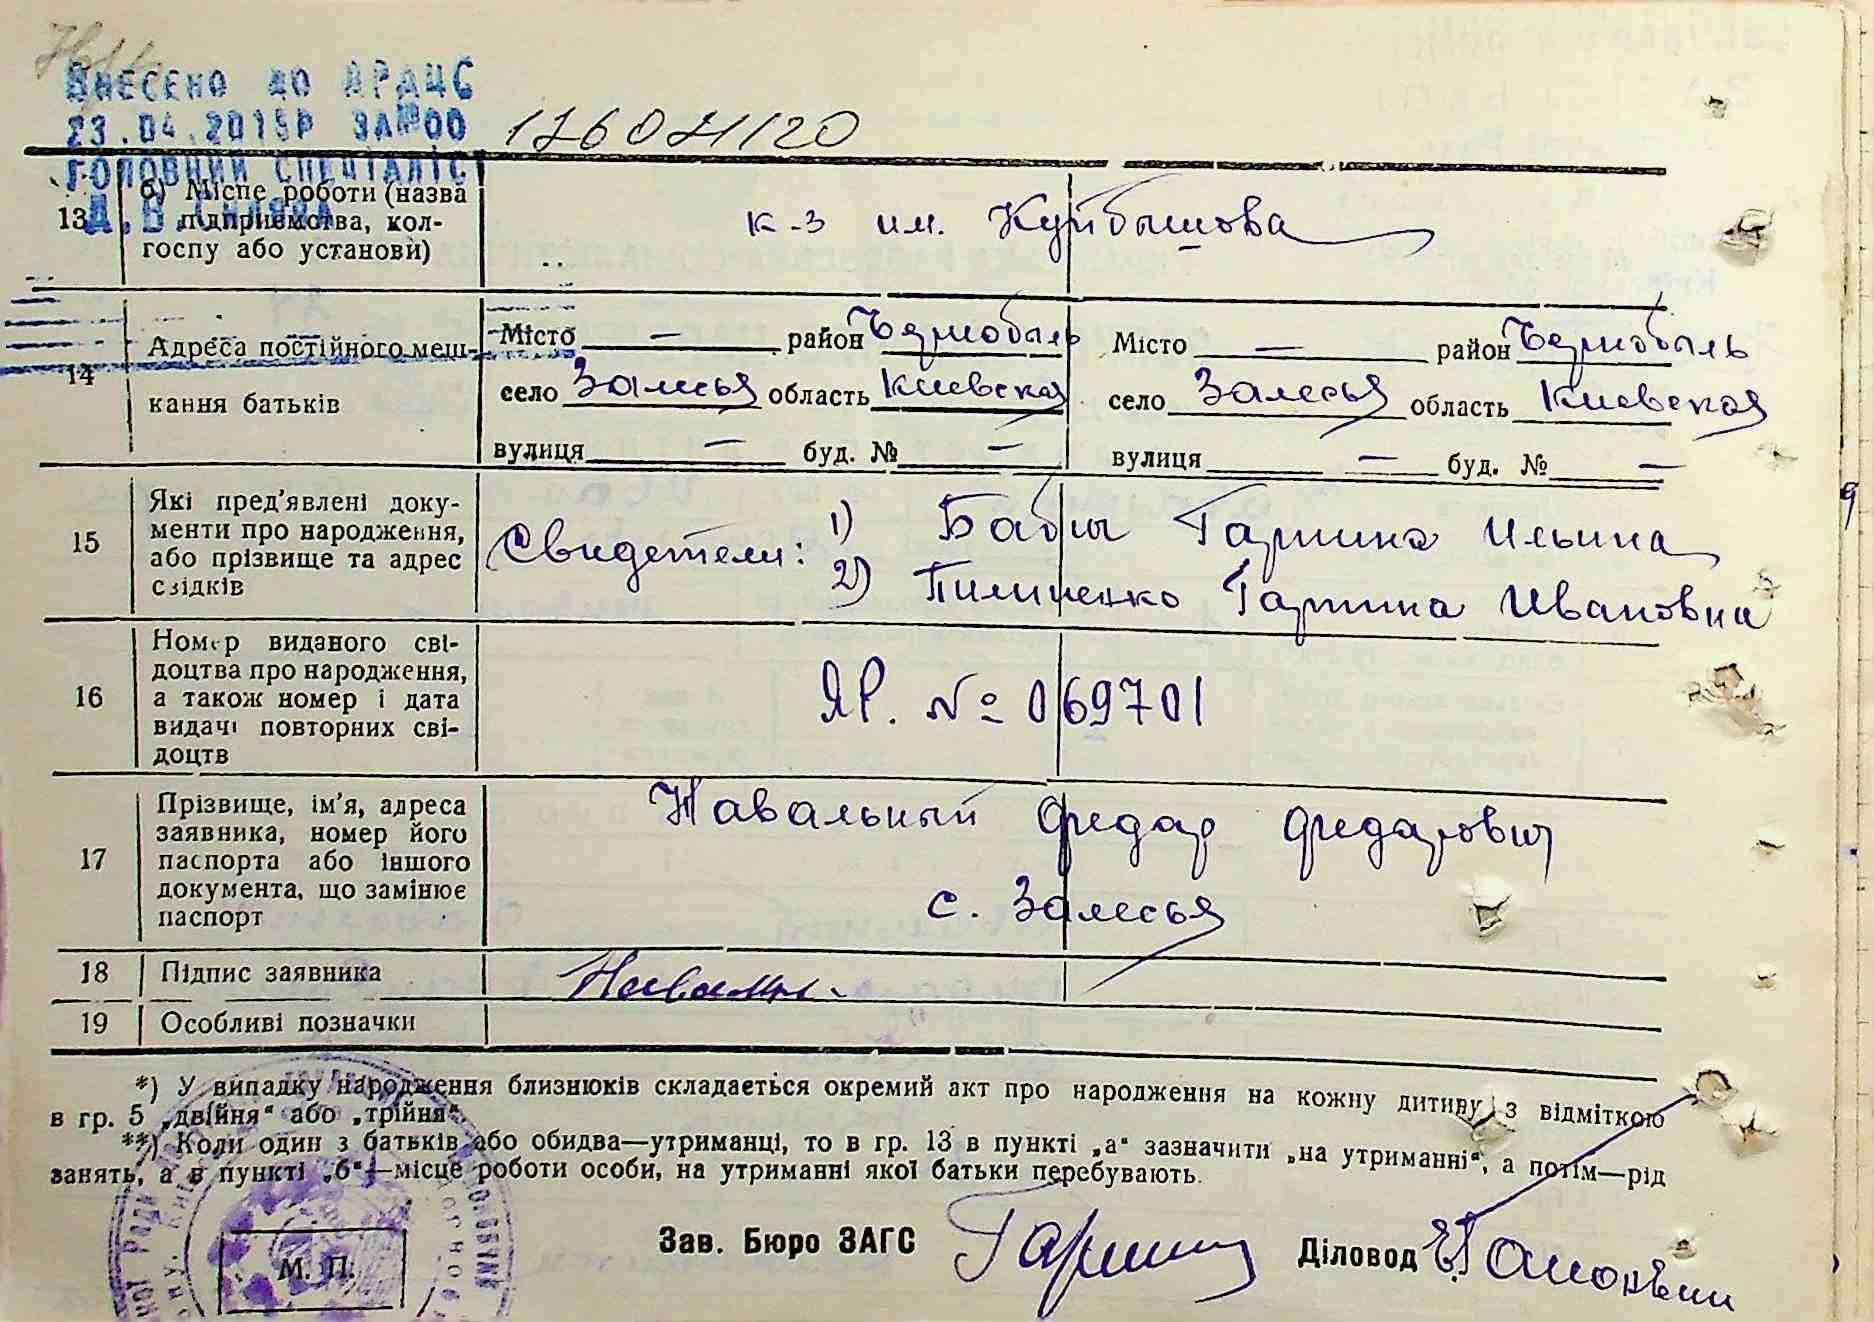 ВНЕСЕНО ДО ДРАЦС
23.04.2015Р ЗА№00 126071120
ГОЛОВНИЙ СПЕЦІАЛІСТ
13 б) Місце роботи (назва
підприємства, кол-
госпу або установи)
к-з им. Куйбышова
14 Адреса постійного меш-
кання батьків
Місто — район Чернобыль Місто — район Чернобыль
село Залесья область Киевская село Залесья область Киевская
вулиця — буд. № — вулиця — буд. № —
15 Які пред'явлені доку-
менти про народження,
або прізвище та адрес
свідків
Свидетели: 1) Бабы Галина Ильина
2) Пилипенко Галина Ивановна
16 Номер виданого сві-
доцтва про народження,
а також номер і дата
видачі повторних сві-
доцтв
ЯР. № 069701
17 Прізвище, ім'я, адреса
заявника, номер його
паспорта або іншого
документа, що замінює
паспорт
Навальный Федар Федарович
с. Залесья
18 Підпис заявника
19 Особливі позначки
*) У випадку народження близнюків складається окремий акт про народження на кожну дитину з відміткою
в гр. 5 „двійня“ або „трійня“.
**) Коли один з батьків або обидва—утриманці, то в гр. 13 в пункті „а“ зазначити „на утриманні“, а потім—рід
занять, а в пункті „б“—місце роботи особи, на утриманні якої батьки перебувають.
Зав. Бюро ЗАГС Діловод
М. П.